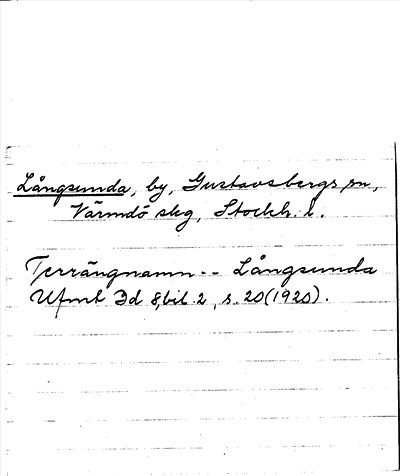 Långsunda, by, Gustavsbergs sn,
Värmdö skg, Stockh. l.
Terrängnamn -- Långsunda
Ufmt Bd 8, bil. 2, s. 20 (1920).